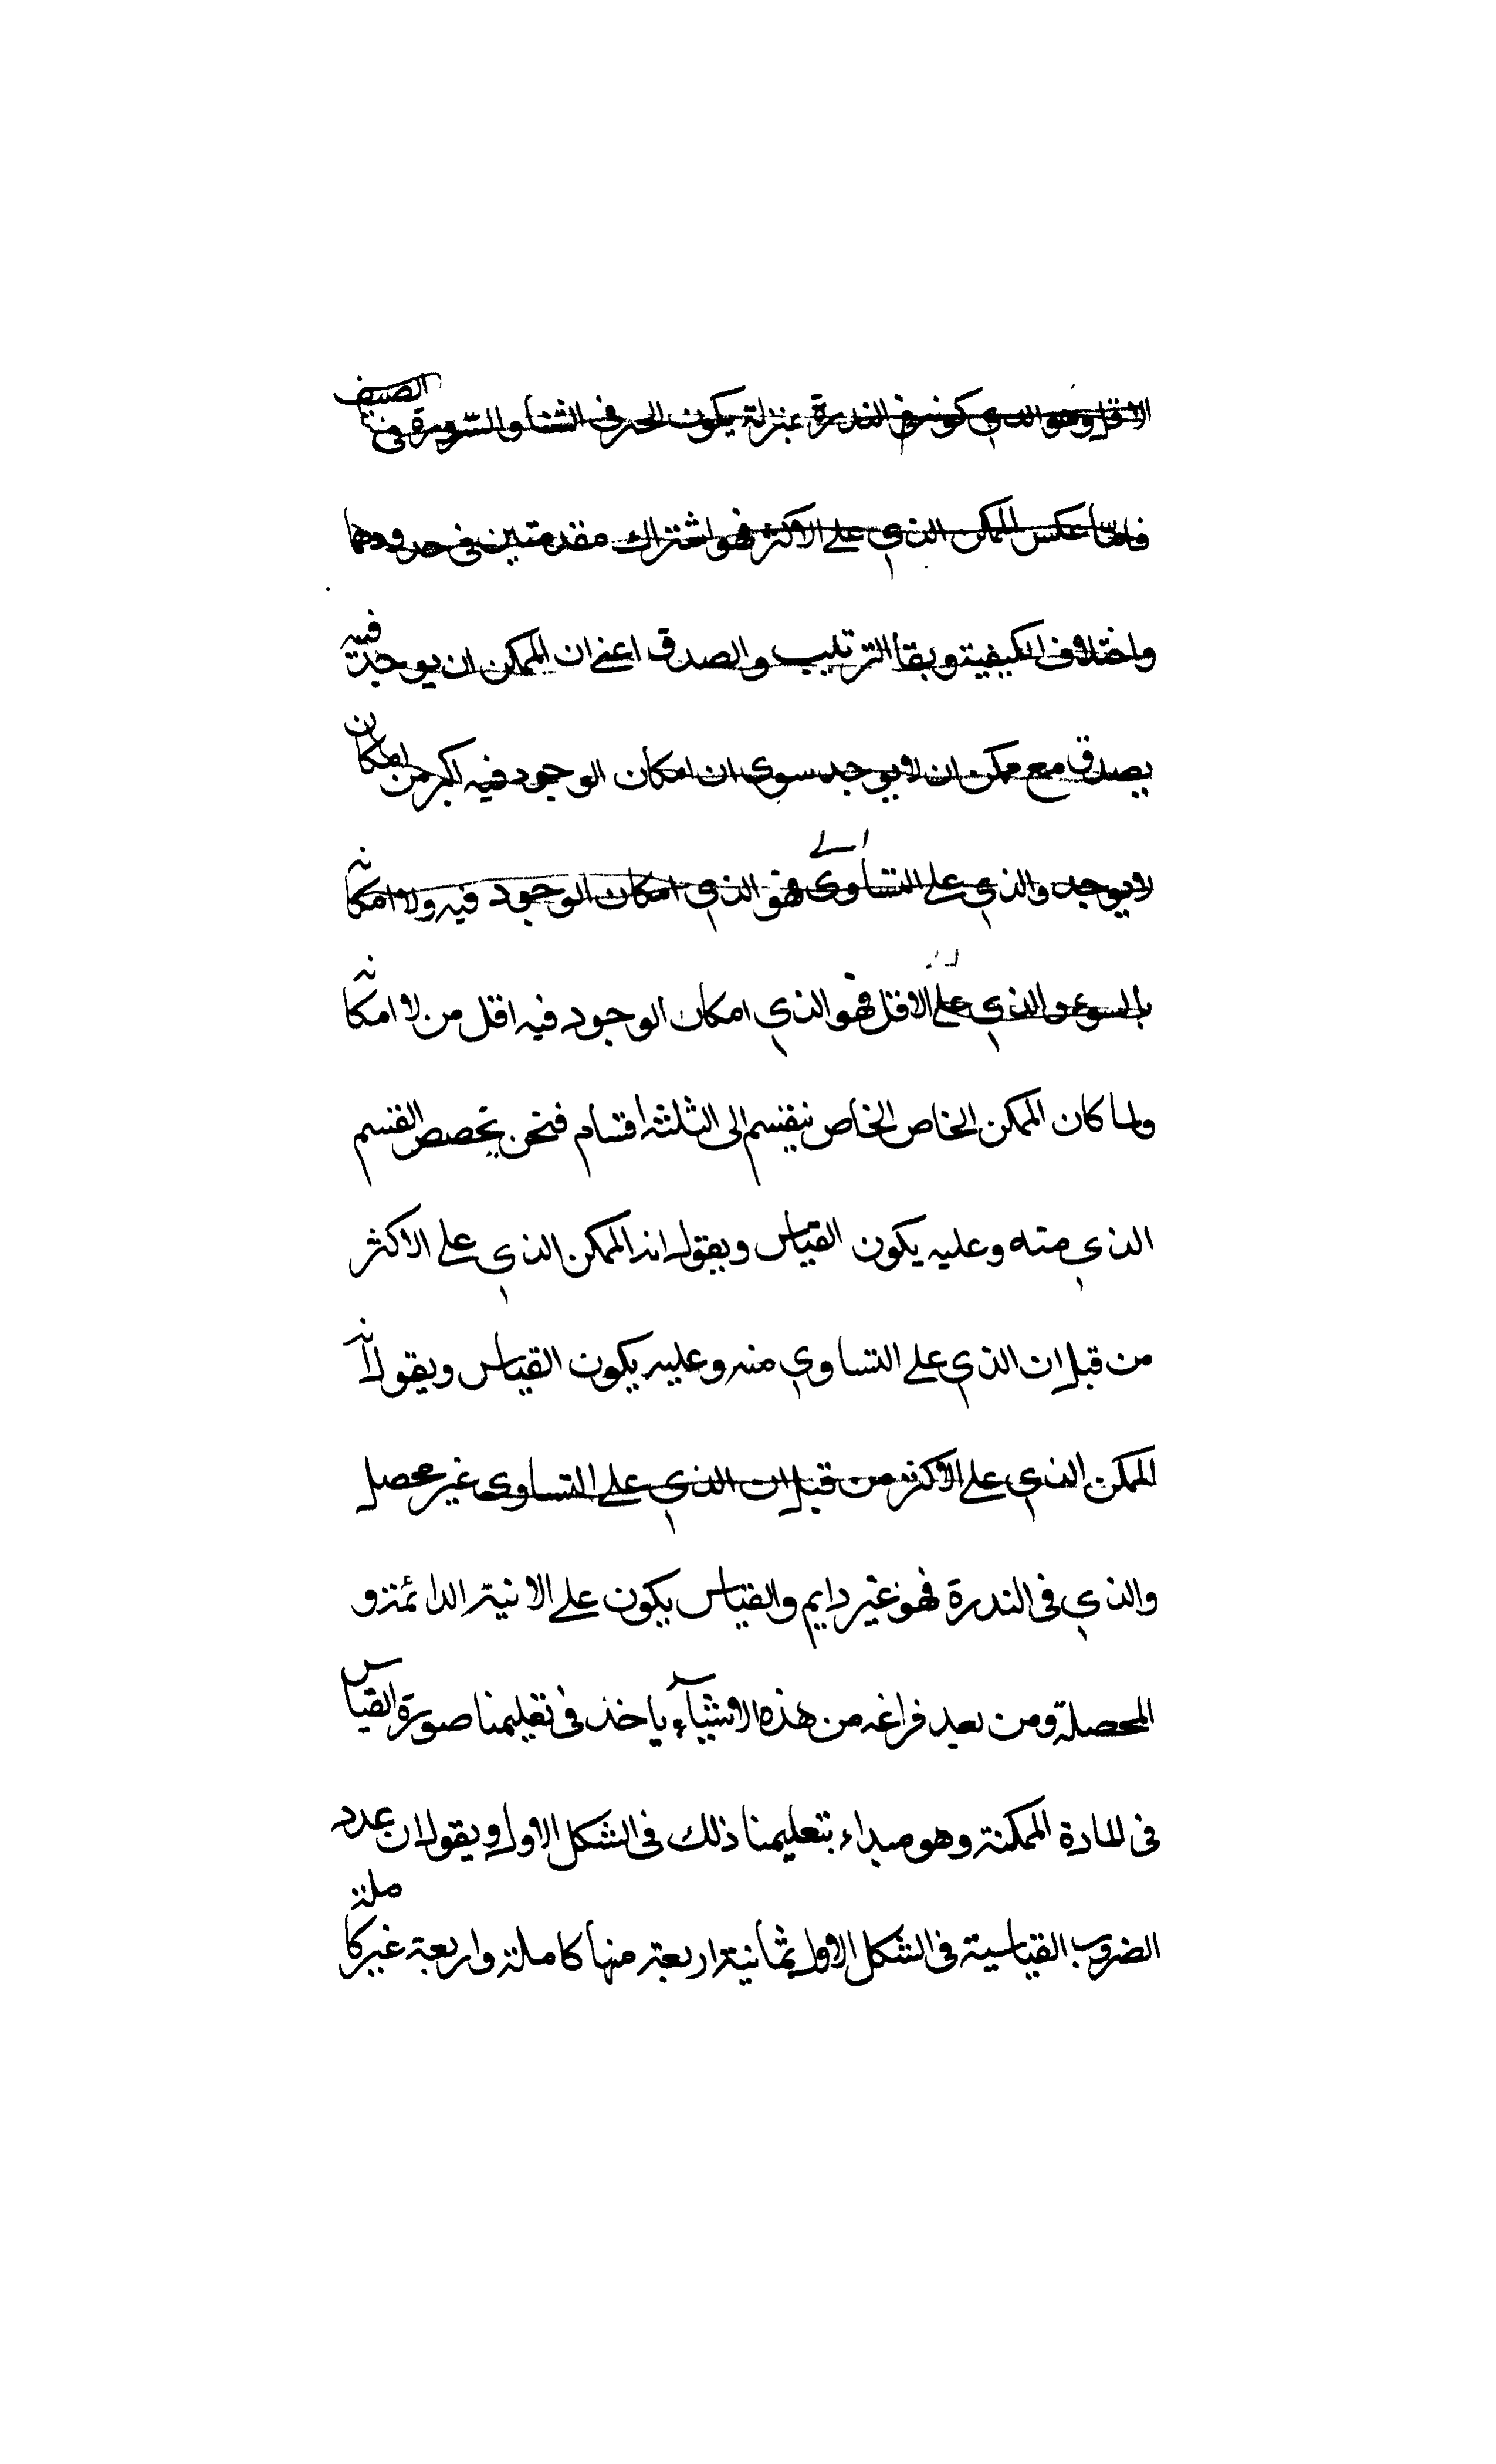 الاقل وهو الذي كونه في الندرة بمنزلة يكون الحر في الشتا والبرودة في الصيف
فاما عكس الممكن الذي على الاكثر فهو اشتراك مقدمتين في حدودهما
واختلاف الكيفية وبقا الترتيب والصدق اعني ان الممكن ان يوجد فيه
يصدق مع ممكن ان لا يوجد سوى ان امكان الوجود فيه اكبر من امكان
لا يوجد والذي على التساوى فهو الذي امكان الوجود فيه ولا امكانه
بالسوء والذي على الاقل فهو الذي امكان الوجود فيه اقل من لا امكانه
ولما كان الممكن الخاص الخاص ينقسم الى الثلثه اقسام فنحن نخصص القسم
الذي منه وعليه يكون القياس ويقول انه الممكن الذي على الاكثر
من قبل ان الذي على التساوي منه وعليه يكون القياس ويقول انه
الممكن الذي على الاكثر من قبل ان الذي على التساوى غير محصل
والذي فى الندرة فهو غير دايم والقياس يكون على الانية الدائمة و
المحصلة ومن بعد فراغه من هذه الاشيآء ياخذ فى تعليمنا صورة القياس
فى المادة الممكنة وهو مبداء بتعليمنا ذلك فى الشكل الاول ويقول ان عدد
الضروب القياسية فى الشكل الاول ثمانية اربعة منها كاملة واربعة غير كاملة